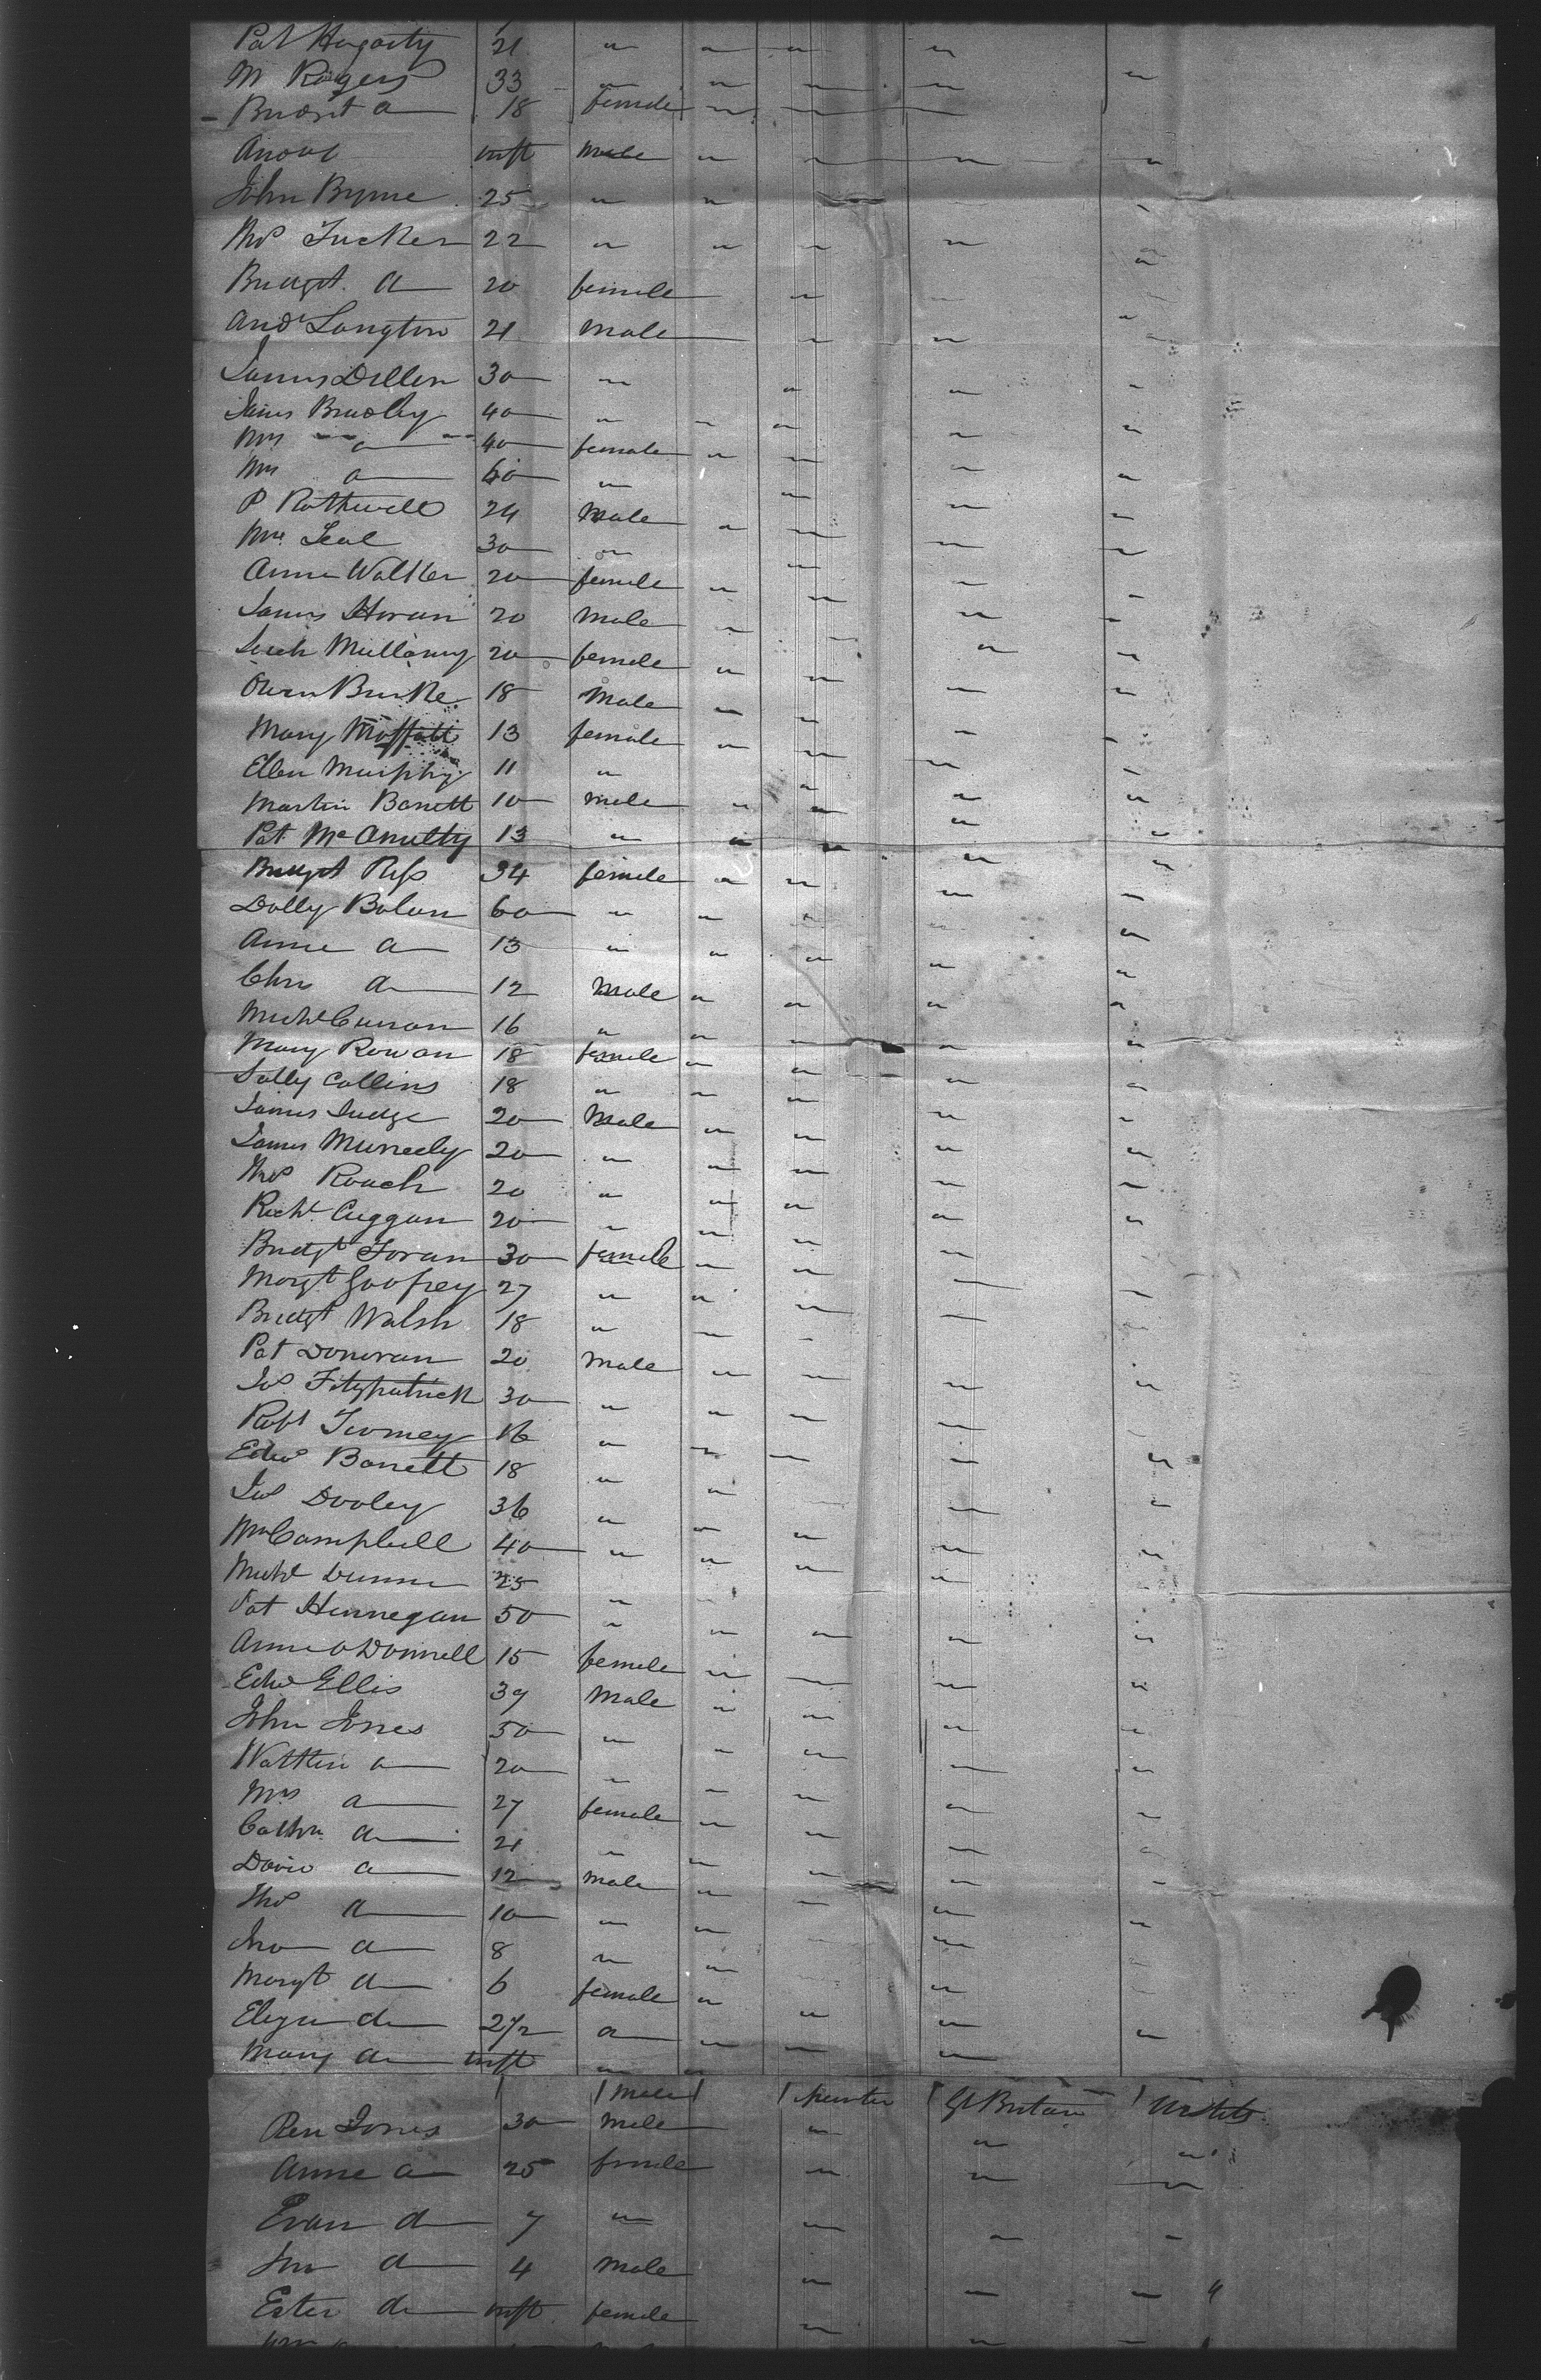 Pat Hagarty 21 " " " "
M Rogers 33 " " " " "
Bridgt do 18 female " " "
Andw inft male " " " "
John Byrne 25 " "
Thos Tucker 22 " " " " "
Bridgt. do 20 female "
Andw Langton 21 Male " " "
James Dillon 30 " " " "
James Bradley 40 " " " " "
Mrs do 40 female " " " "
Mrs do 60 " " " "
P Rothwell 24 Male " " " "
Mr. Leal 30 " " " "
Anne Walker 20 female " " " "
James Horan 20 Male " " " "
Mullamy 20 female " " " "
Owen Burke 18 Male " " " "
Mary Moffatt 13 female " " " "
Ellen Murphy 11 " " " "
Martin Barrett 10 male " " " "
Pat McAnulty 13 " " " " "
Bridgt Ross 34 female " " " "
Dolly Bolan 60 " " " " "
Anne do 13 " " " " "
Chrs do 12 Male " " " "
Michl Curran 16 " " " " "
Mary Rowan 18 female " " " "
Sally Collins 18 " " " " "
James Judge 20 Male " " " "
James Munnely 20 " " " " "
Thos Roach 20 " " " " "
Richd. Cuggan 20 " " " " "
Bridgt Foran 30 female " " "
Margt Godfrey 27 " " " " "
Bridgt Walsh 18 " " " "
Pat Donovan 20 male " " " "
Jas. Fitzpatrick 30 " " " "
Robt Twomey 16 " " " " "
Edwd Barrett 18 " " " "
Jas Dooley 36 " " " " "
Wm Campbell 40 " " " "
Michl Dunn 25 "
Pat Hennegan 50 " " " " "
Anne O Donnell 15 female " " " "
Edwd Ellis 39 Male " " " "
John Jones 50 " " " " "
do 20 " " " " "
Mrs do 27 female " " " "
Cathn do 21 " " " "
David do 12 male " " " "
Thos do 10 " " " "
Jno do 8 " " "
Margt do 6 female " " " "
do 2 1/2 do " " "
Mary do inft " "
Male Gt Britain
Ren Jones 30 Male " " "
Anne do 25 female " " "
Evan do 7 " " " "
Jno do 4 Male " " "
Ester do inft female " " "